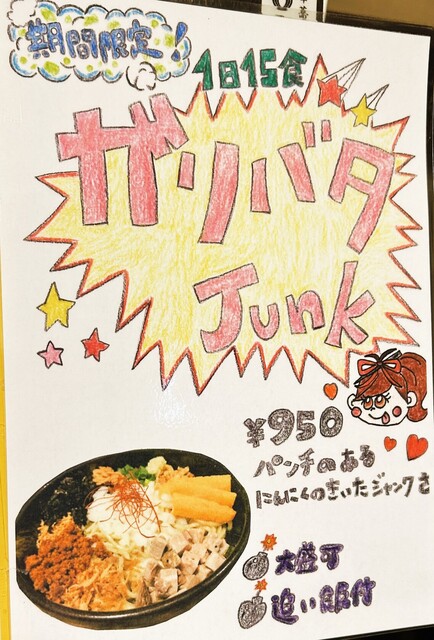 期間限定！
1日15食
ガリバタ
Junk
¥950
パンチのある
にんにくのきいたジャンクさ
大盛可
追い飯付